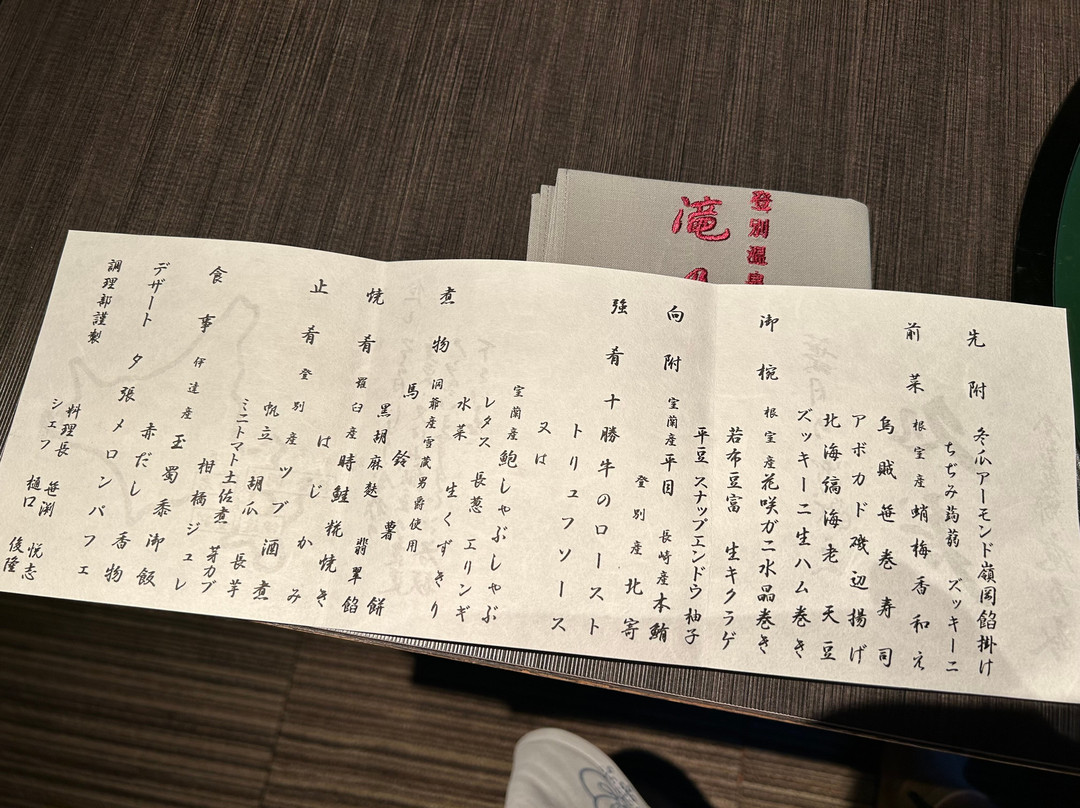 先附 冬瓜アーモンド嶺岡餡掛け
ちぢみ蒟蒻 ズッキーニ
前菜 根室産蛸梅香和え
烏賊笹巻寿司
アボカド磯辺揚げ
北海縞海老 天豆
ズッキーニ生ハム巻き
御椀 根室産花咲ガニ水晶巻き
若布豆富 生キクラゲ
平豆 スナップエンドウ 柚子
向附 室蘭産平目 長崎産本鮪
登別産北寄
強肴 十勝牛のロースト
トリュフソース
又は
室蘭産鮑しゃぶしゃぶ
レタス 長葱 エリンギ
水菜 生くずきり
煮物 洞爺産雪蔵男爵使用
馬鈴薯餅
黒胡麻麩 翡翠餡
焼肴 羅臼産時鮭糀焼き
はじかみ
止肴 登別産ツブ酒煮
帆立 胡瓜 長芋
ミニトマト土佐煮 芽カブ
柑橘ジュレ
食事 伊達産玉蜀黍御飯
赤だし 香物
デザート 夕張メロンパフェ
調理部謹製
料理長 笹渕 悦志
シェフ 樋口 俊隆
登別温泉
滝